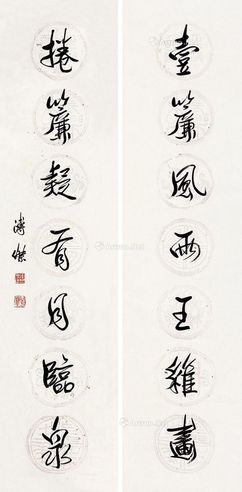 壹簾風雨王維畫
捲簾疑有月臨泉
溥傑